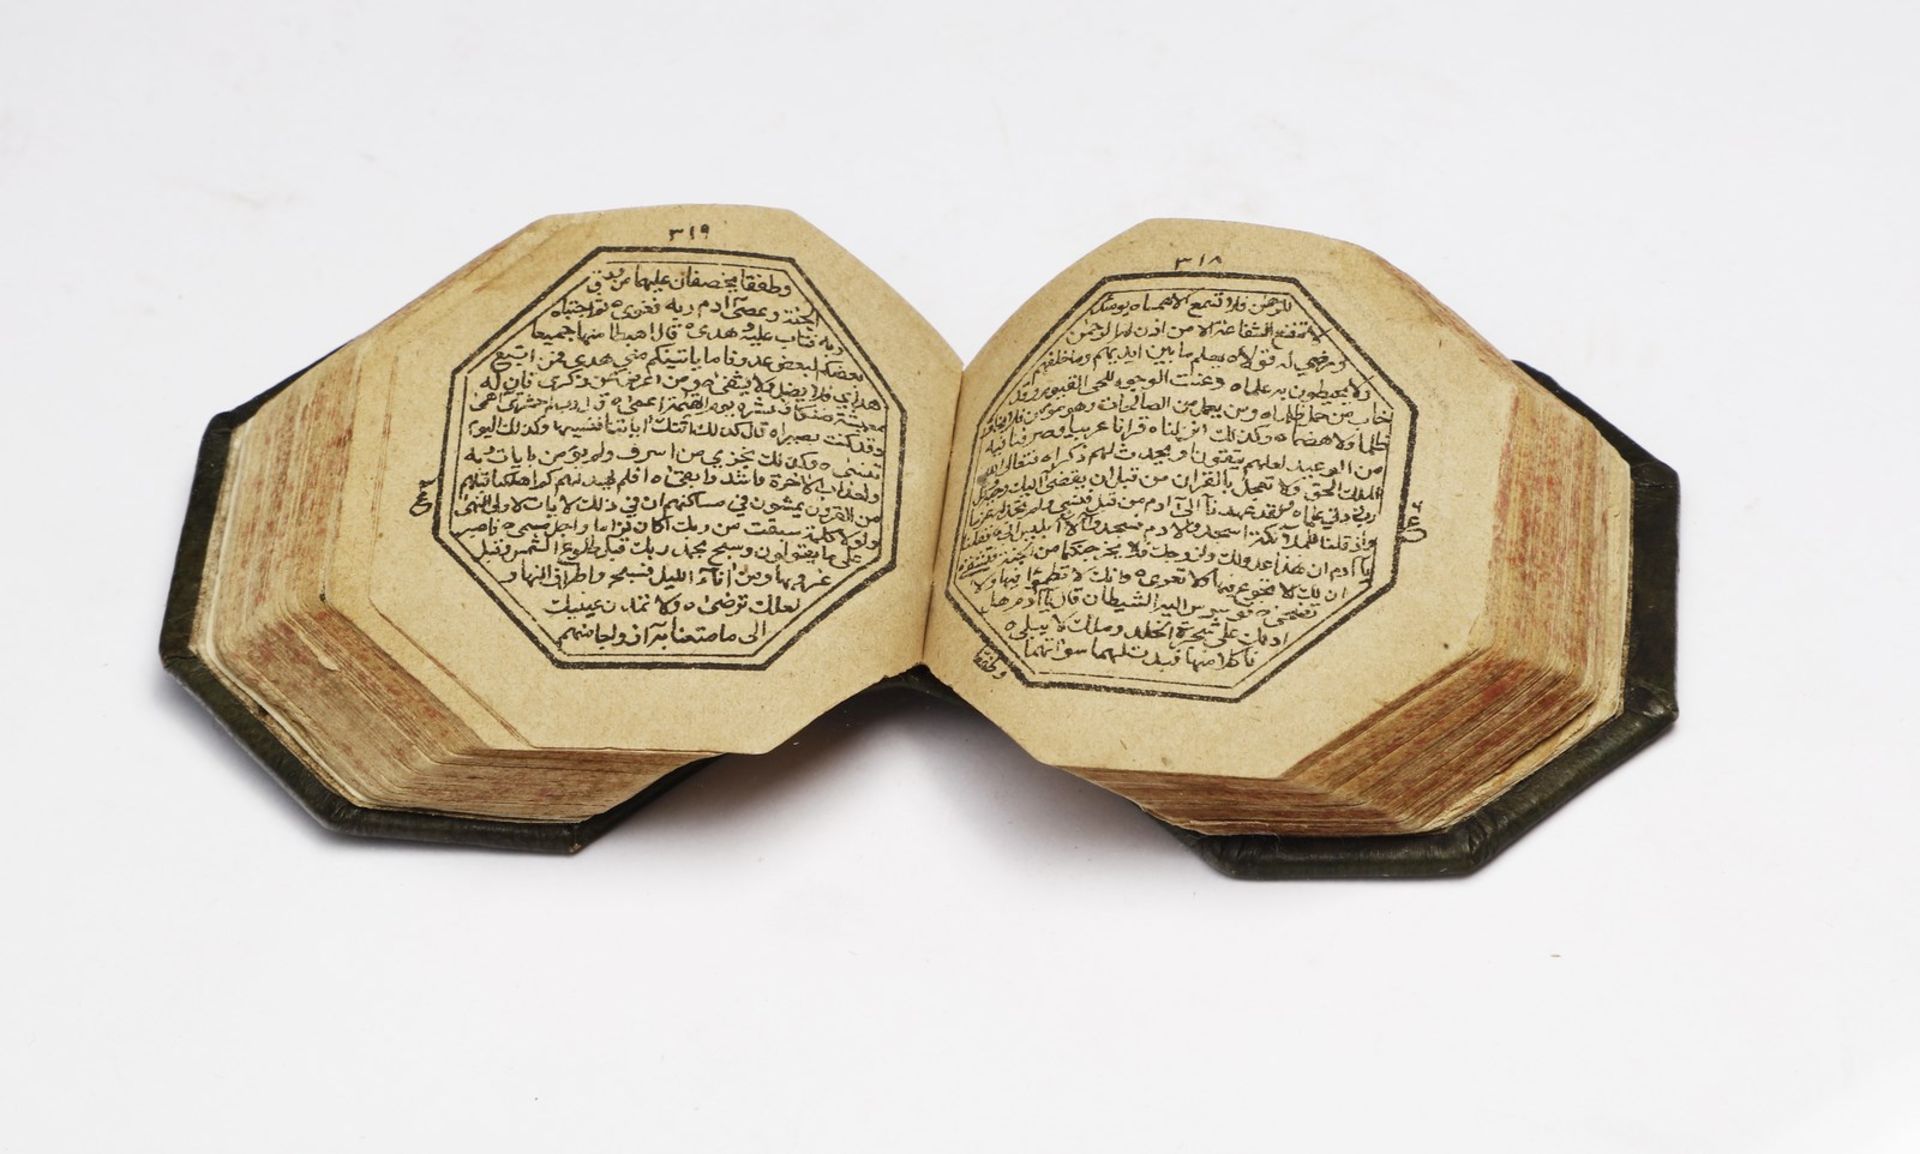 ٣١٨
للرحمن فلا تسمع الا همسا ه يومئذ
لا تنفع الشفاعة الا من اذن له الرحمن
ورضي له قولا ه يعلم ما بين ايديهم وما خلفهم
ولا يحيطون به علما ه وعنت الوجوه للحي القيوم وقد
خاب من حمل ظلما ه ومن يعمل من الصالحات وهو مؤمن فلا يخاف
ظلما ولا هضما ه وكذلك انزلناه قرانا عربيا وصرفنا فيه
من الوعيد لعلهم يتقون او يحدث لهم ذكرا ه فتعالى الله
الملك الحق ولا تعجل بالقران من قبل ان يقضى اليك وحيه وقل
رب زدني علما ه ولقد عهدنآ الى آدم من قبل فنسي ولم نجد له عزما
واذ قلنا للملآئكة اسجدوا لادم فسجدوا الا ابليس ابى ه فقلنا
يا آدم ان هذا عدو لك ولزوجك فلا يخرجنكما من الجنة فتشقى ه
ان لك الا تجوع فيها ولا تعرى ه وانك لا تظمؤا فيها ولا
تضحى ه فوسوس اليه الشيطان قال يآ آدم هل
ادلك على شجرة الخلد وملك لا يبلى ه
فاكلا منها فبدت لهما سوآتهما
وطفقا
عشر
٣١٩
وطفقا يخصفان عليهما من ورق
الجنة وعصى آدم ربه فغوى ه ثم اجتباه
ربه فتاب عليه وهدى ه قال اهبطا منها جميعا
بعضكم لبعض عدو فاما ياتينكم مني هدى فمن اتبع
هداي فلا يضل ولا يشقى ه ومن اعرض عن ذكري فان له
معيشة ضنكا ونحشره يوم القيمة اعمى ه قال رب لم حشرتني اعمى
وقد كنت بصيرا ه قال كذلك اتتك اياتنا فنسيتها وكذلك اليوم
تنسى ه وكذلك نجزي من اسرف ولم يؤمن بايات ربه
ولعذاب الاخرة اشد وابقى ه افلم يهد لهم كم اهلكنا قبلهم
من القرون يمشون في مساكنهم ان في ذلك لايات لاولي النهى
ولولا كلمة سبقت من ربك لكان لزاما واجل مسمى ه فاصبر
على ما يقولون وسبح بحمد ربك قبل طلوع الشمس وقبل
غروبها ومن انآء الليل فسبح واطراف النهار
لعلك ترضى ه ولا تمدن عينيك
الى ما متعنا به ازواجا منهم
عشر